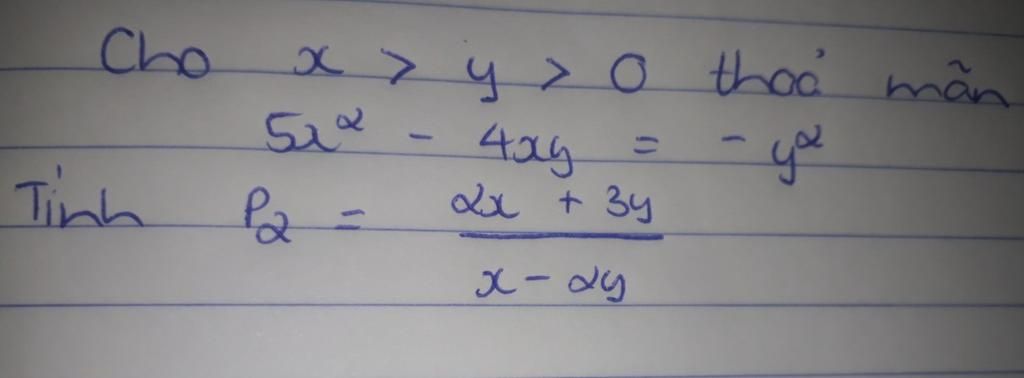 Cho x > y > 0 thoả mãn
5x² - 4xy = - y²
Tính P₂ = \frac{2x + 3y}{x - 2y}